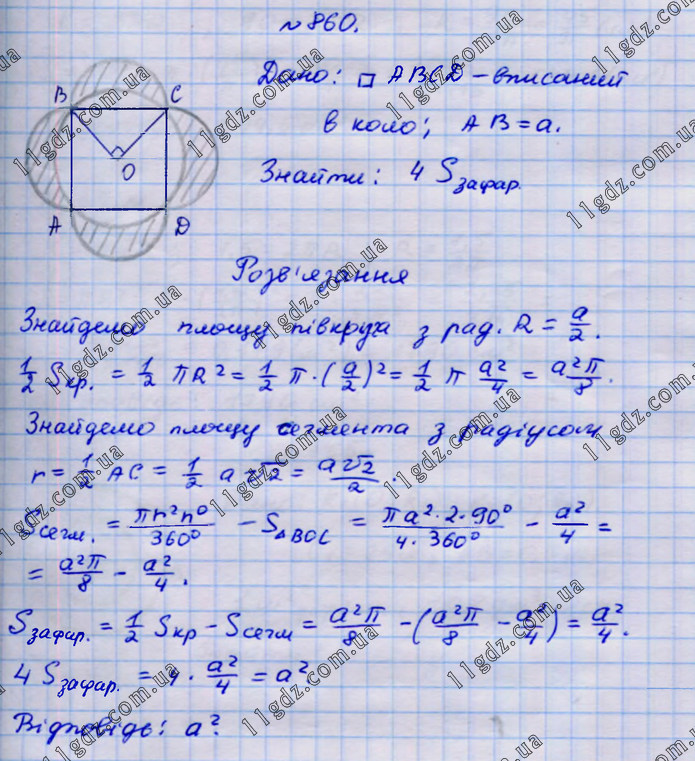 №860.
Дано: □ ABCD – вписаний
в коло; AB = a.
Знайти: 4 Sзафар.
B C
O
A D
Розв'язання
Знайдемо площу півкруга з рад. R = a/2.
1/2 Sкр. = 1/2 πR² = 1/2 π·(a/2)² = 1/2 π a²/4 = a²π/8.
Знайдемо площу сегмента з радіусом
r = 1/2 AC = 1/2 a√2 = a√2/2.
Sсегм. = πr²n°/360° – S△BOC = πa²·2·90°/4·360° – a²/4 =
= a²π/8 – a²/4.
Sзафар. = 1/2 Sкр – Sсегм = a²π/8 – (a²π/8 – a²/4) = a²/4.
4 Sзафар. = 4 · a²/4 = a²
Відповідь: a².
11gdz.com.ua